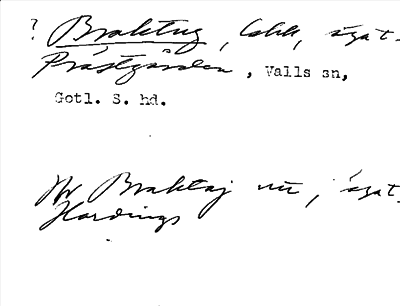 ? Braktug, , ägat.
Prästgården, Valls sn,
Gotl. S. hd.
Nr Braktaj nr, ägat.
Hardings